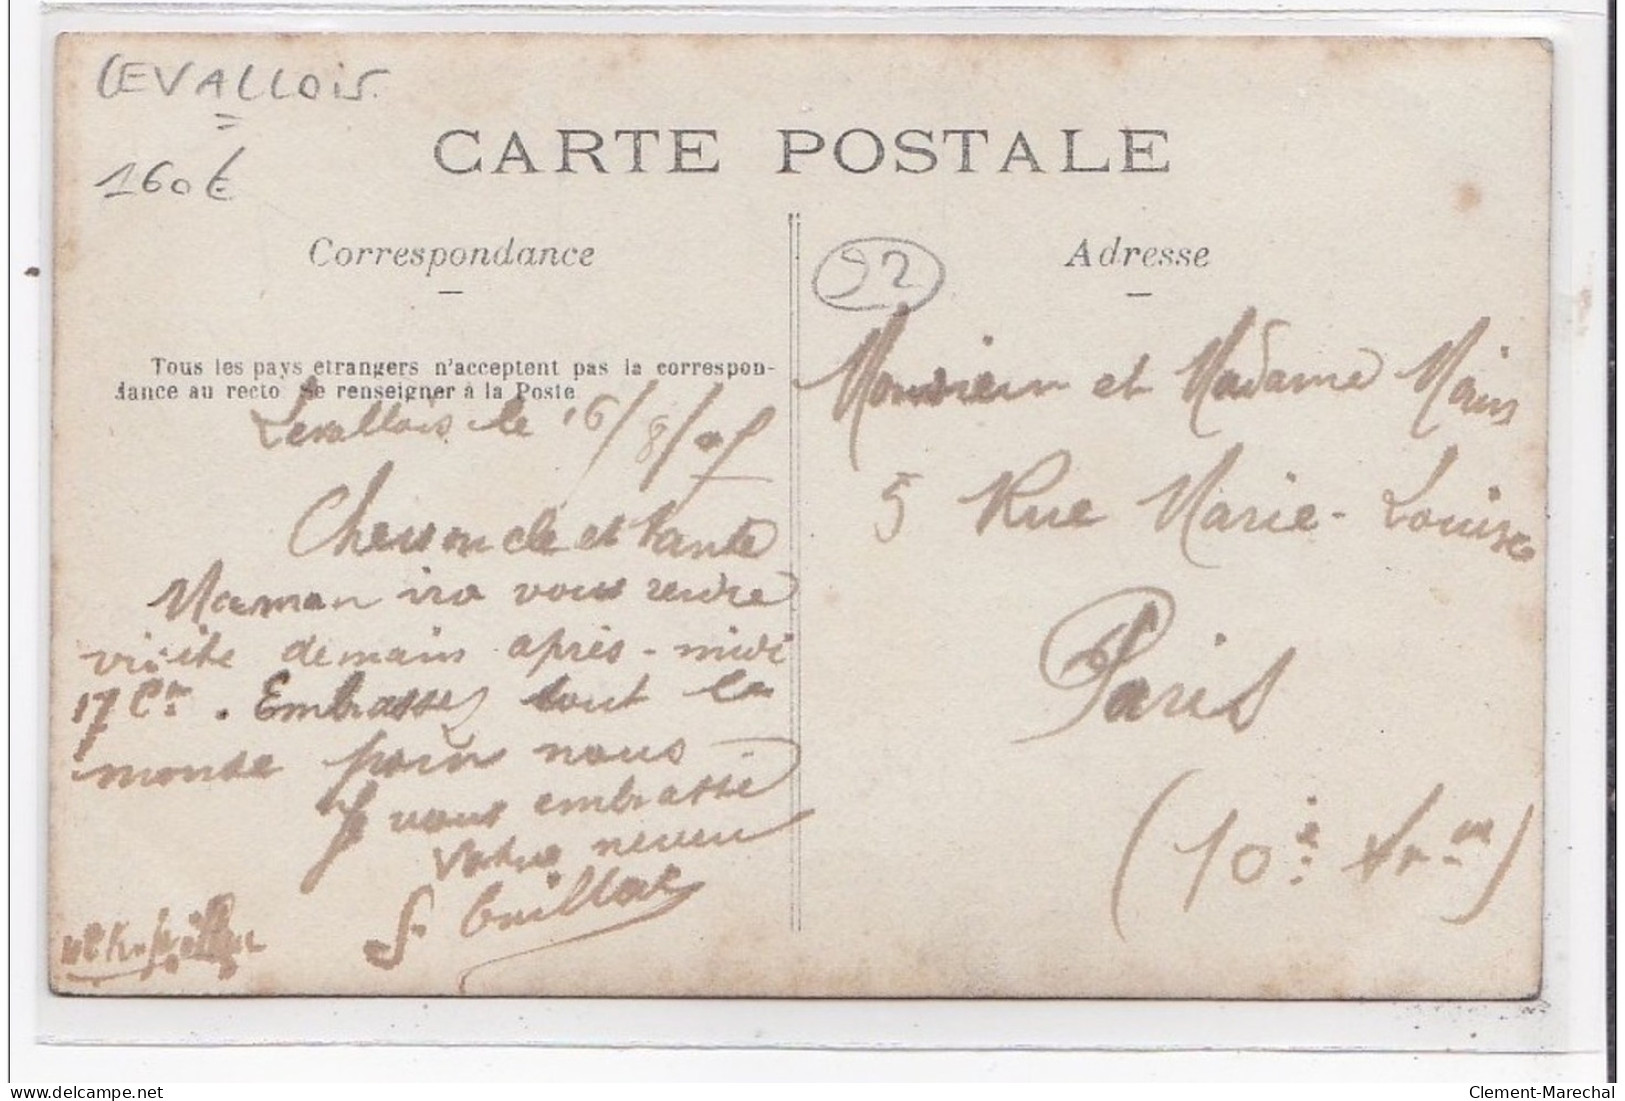 LEVALLOIS
160€
CARTE POSTALE
Correspondance
92
Adresse
Tous les pays etrangers n'acceptent pas la correspon-
dance au recto Se renseigner à la Poste
Levallois le 16/8/07
Cher oncle et tante
Maman ira vous rendre
visite demain après-midi
17 Ct. Embrassez tout le
monde pour nous
Je vous embrasse
Votre neveu
Monsieur et Madame
5 Rue Marie-Louise
Paris
(10è Arr)
delcampe.net
Clement-Marechal